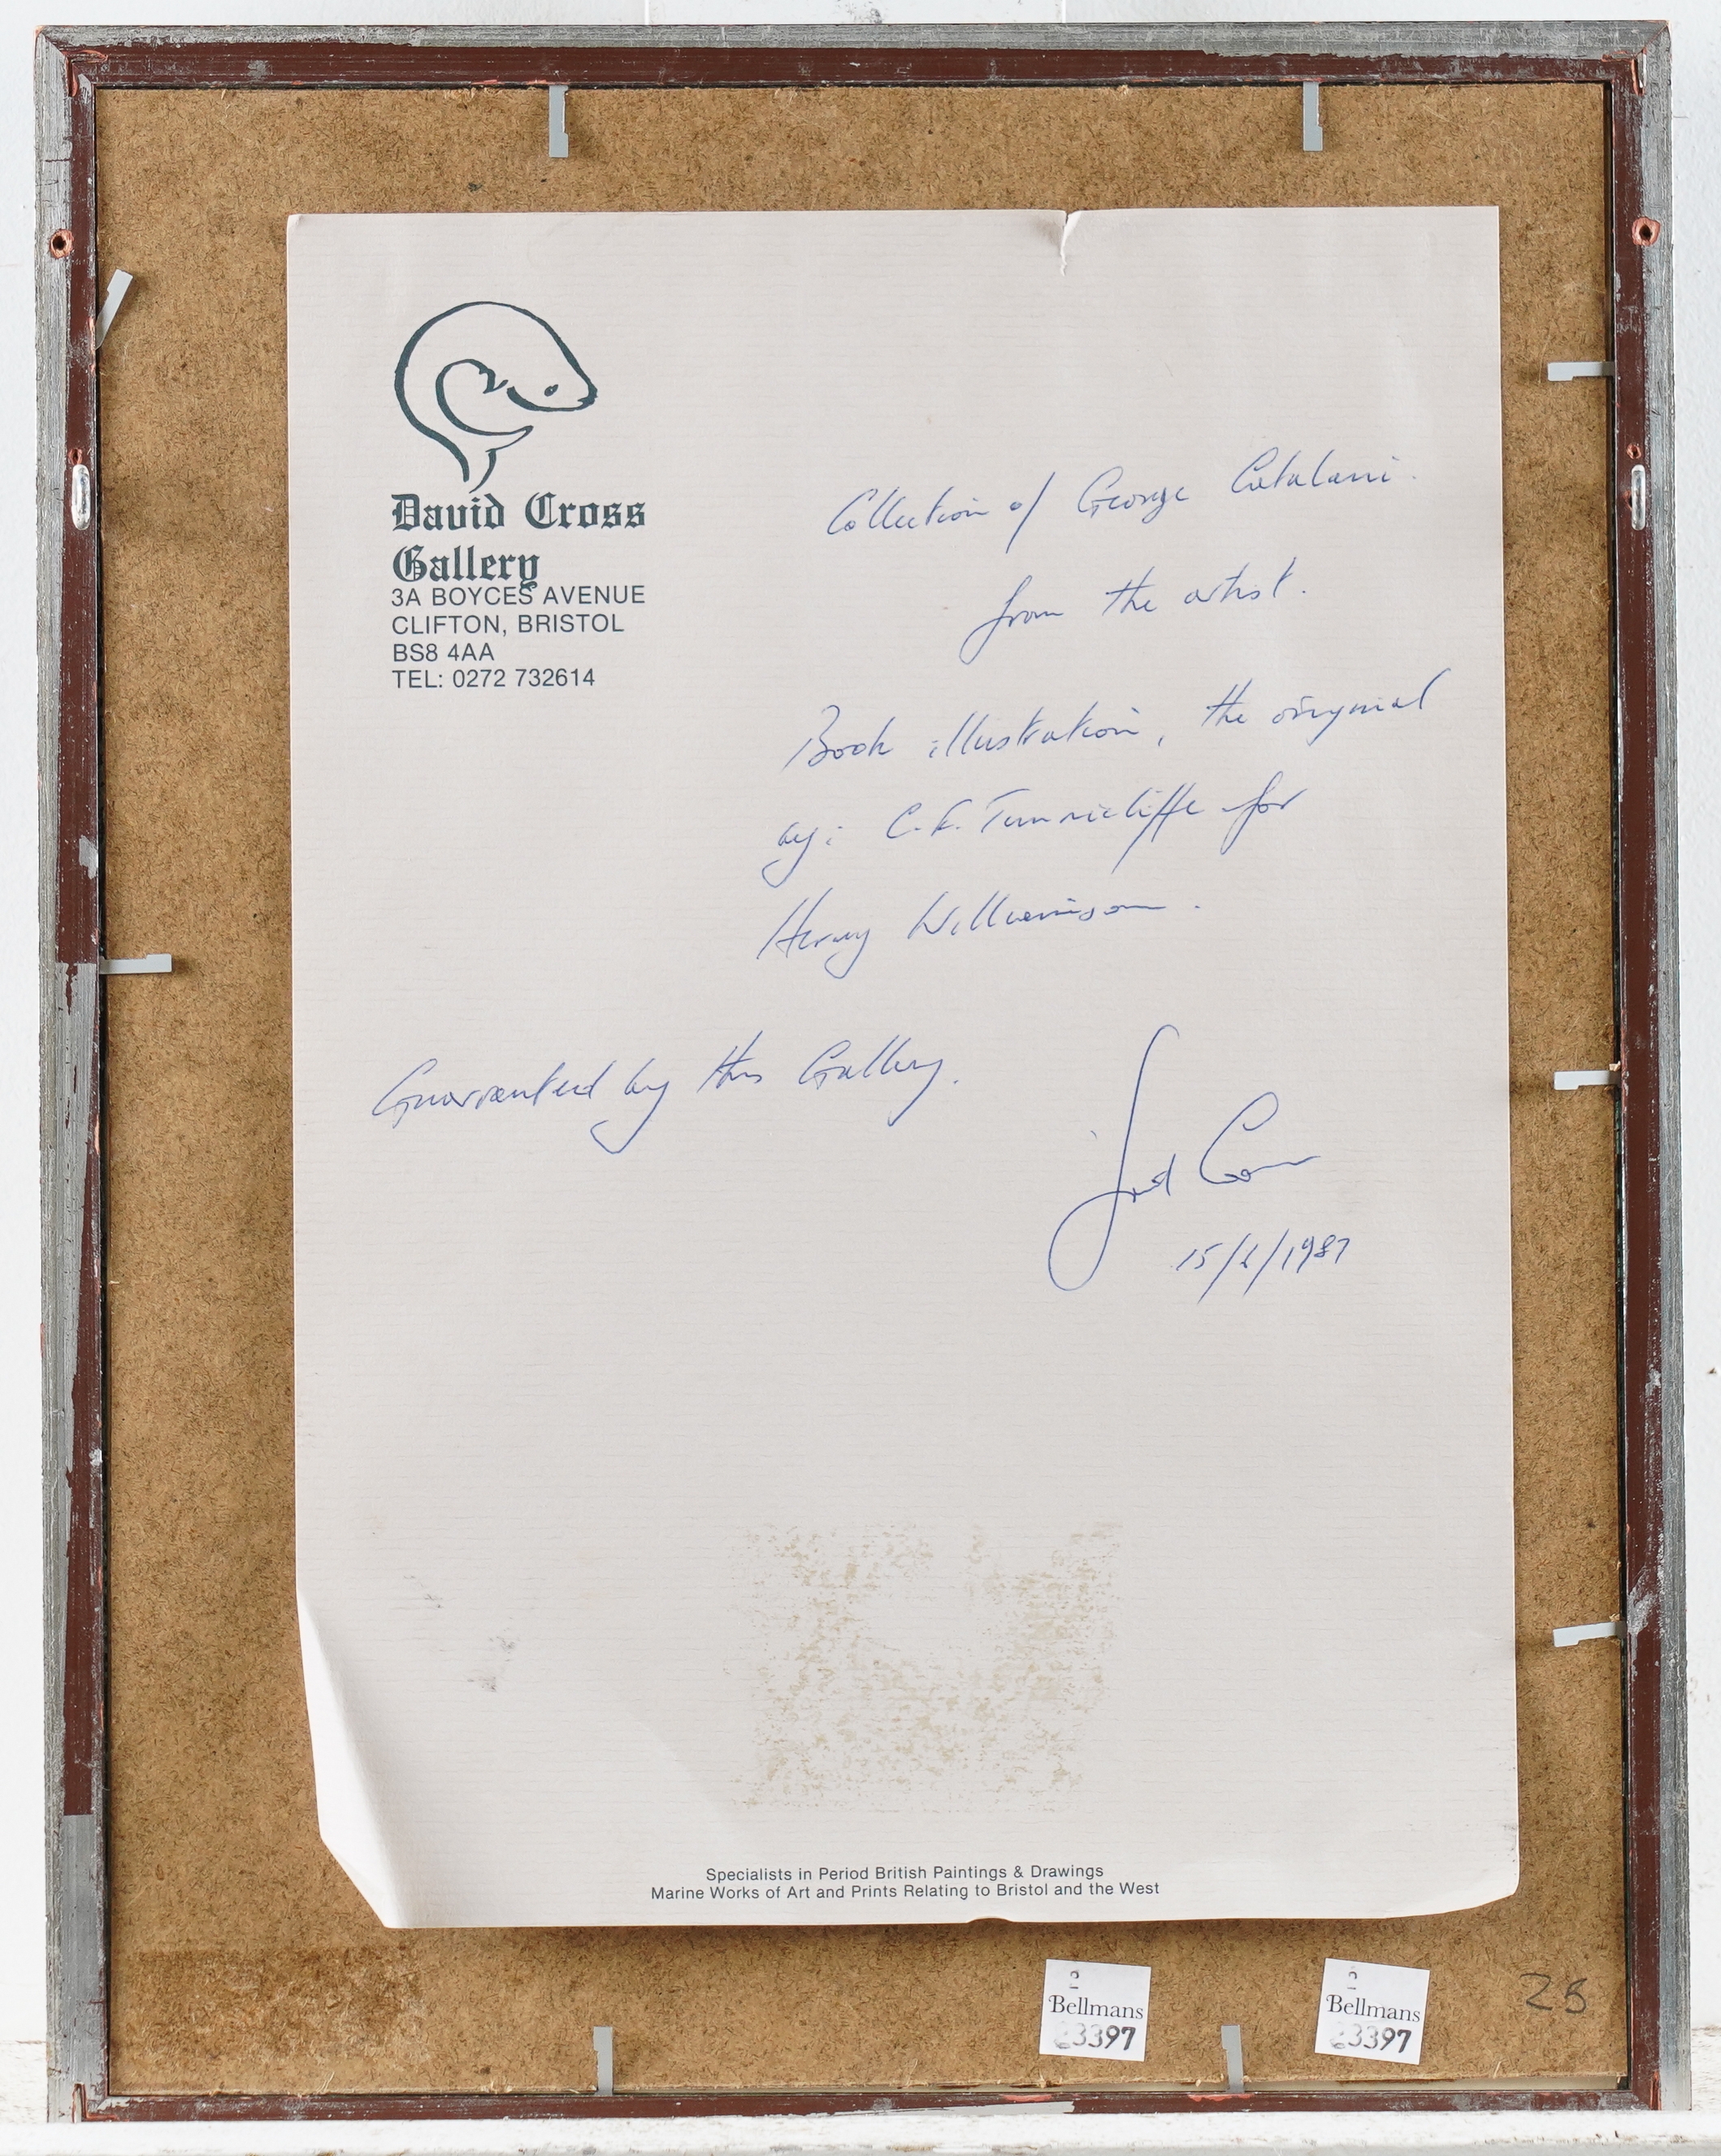 David Cross
Gallery
3A BOYCES AVENUE
CLIFTON, BRISTOL
BS8 4AA
TEL: 0272 732614
Collection of George Catalani.
from the artist.
Book illustration, the original
by: C.F. Tunnicliffe for
Henry Williamson.
Guarranteed by this Gallery.
David Cross
15/ /1987
Specialists in Period British Paintings & Drawings
Marine Works of Art and Prints Relating to Bristol and the West
Bellmans
3397
Bellmans
3397